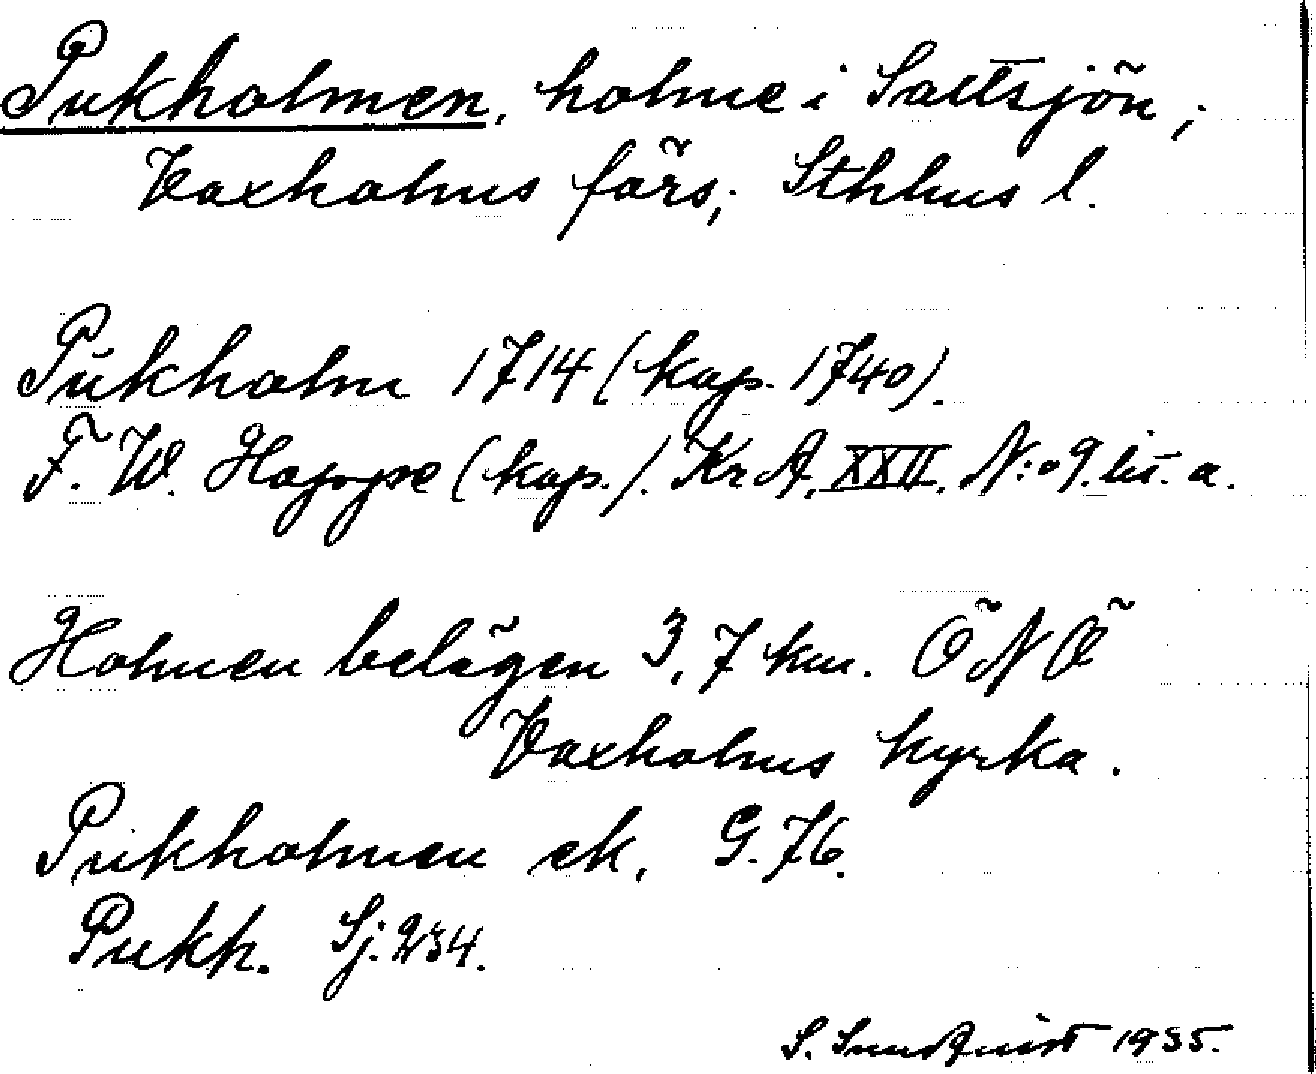 Pukholmen, holme i Saltsjön,
Vaxholms förs, Sthlms l.
Pŭkholm 1714 (kop. 1740).
F. W. Hoppe (kop.). Kr A. XXII. N:o 9. lit. a.
Holmen belägen 3,7 km. ÖNÖ
Vaxholms kyrka.
Pukholmen ek. G. 76.
Pukh. Sj. 234.
S. Sundquist 1935.